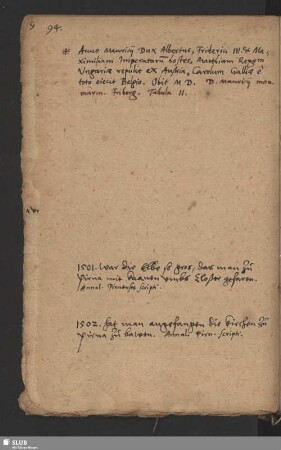 94.
# Anno Mauricij Dux Albertus, Friderici III. & Ma-
ximiliani Imperatorum hostes, Matthiam Regem
Ungariae repulit ex Austria, Carolum Galliae è
toto eiecit Belgio. Obit M D. D. Mauricij mon.
marm. Friberg. Tabula II.
1501. War die Elbe so gros, das man zu
Pirna mit kaanen umbs Closter gefaren.
Annal. Pirnenses scripti.
1502. hat man angefangen die kirchen zu
Pirna zu bawen. Annal. Pirn. scripti.
SLUB